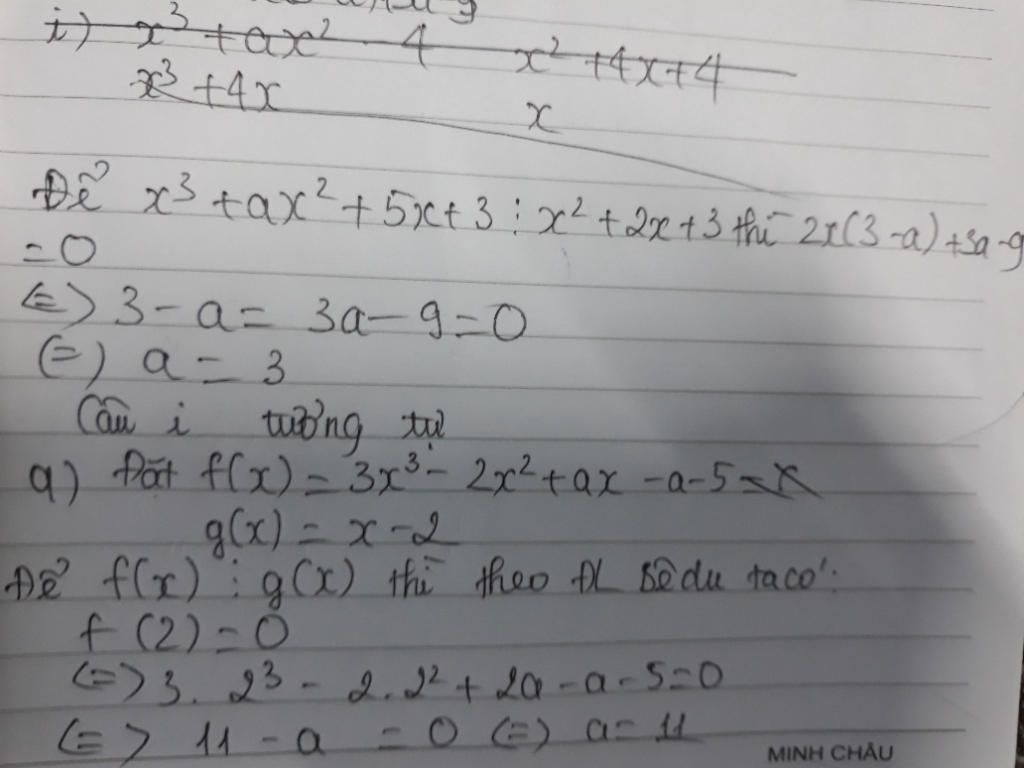 i) x³ + ax² - 4 x² + 4x + 4
x³ + 4x x
Để x³ + ax² + 5x + 3 ⋮ x² + 2x + 3 thì 2x(3 - a) + 3a - 9
= 0
(=) 3 - a = 3a - 9 = 0
(=) a = 3
Câu i tương tự
a) Đặt f(x) = 3x³ - 2x² + ax - a - 5
g(x) = x - 2
Để f(x) ⋮ g(x) thì theo ĐL Bê du ta có:
f(2) = 0
(=) 3. 2³ - 2. 2² + 2a - a - 5 = 0
(=) 11 - a = 0 (=) a = 11
MINH CHÂU